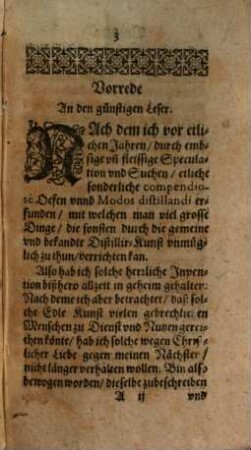 3
Vorrede
An den günstigen Leser.
NAch dem ich vor etli-
chen Jahren / durch emb-
sige vñ fleissige Specula-
tion vnd Suchen / etliche
sonderliche compendio-
sè Oefen vnnd Modos distillandi er-
funden / mit welchen man viel grosse
Dinge / die sonsten durch die gemeine
vnd bekandte Distillir-Kunst vnmüg-
lich zu thun / verrichten kan.
Also hab ich solche herzliche Inven-
tion bißhero allzeit in geheim gehalten:
Nach deme ich aber betrachtet / daß sol-
che Edle Kunst vielen gebrechlichen
Menschen zu Dienst vnd Nutzen gerei-
chen könte / hab ich solche wegen Christ-
licher Liebe gegen meinen Nächsten /
nicht länger verhalten wollen. Bin also
bewogen worden / dieselbe zubeschreiben
A ij vnd